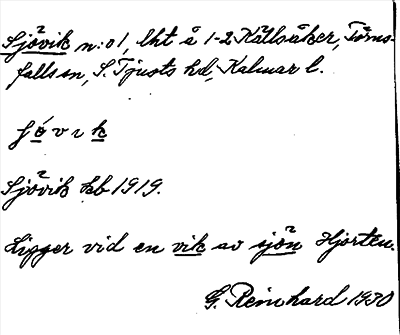 Sjövik n:o 1, lht å 1-2 Källsåker, Törns-
falls sn, S. Tjusts hd, Kalmar l.
ʃövık
Sjövik kb 1919.
Ligger vid en vik av sjön Hjorten.
G. Reinhard 1930